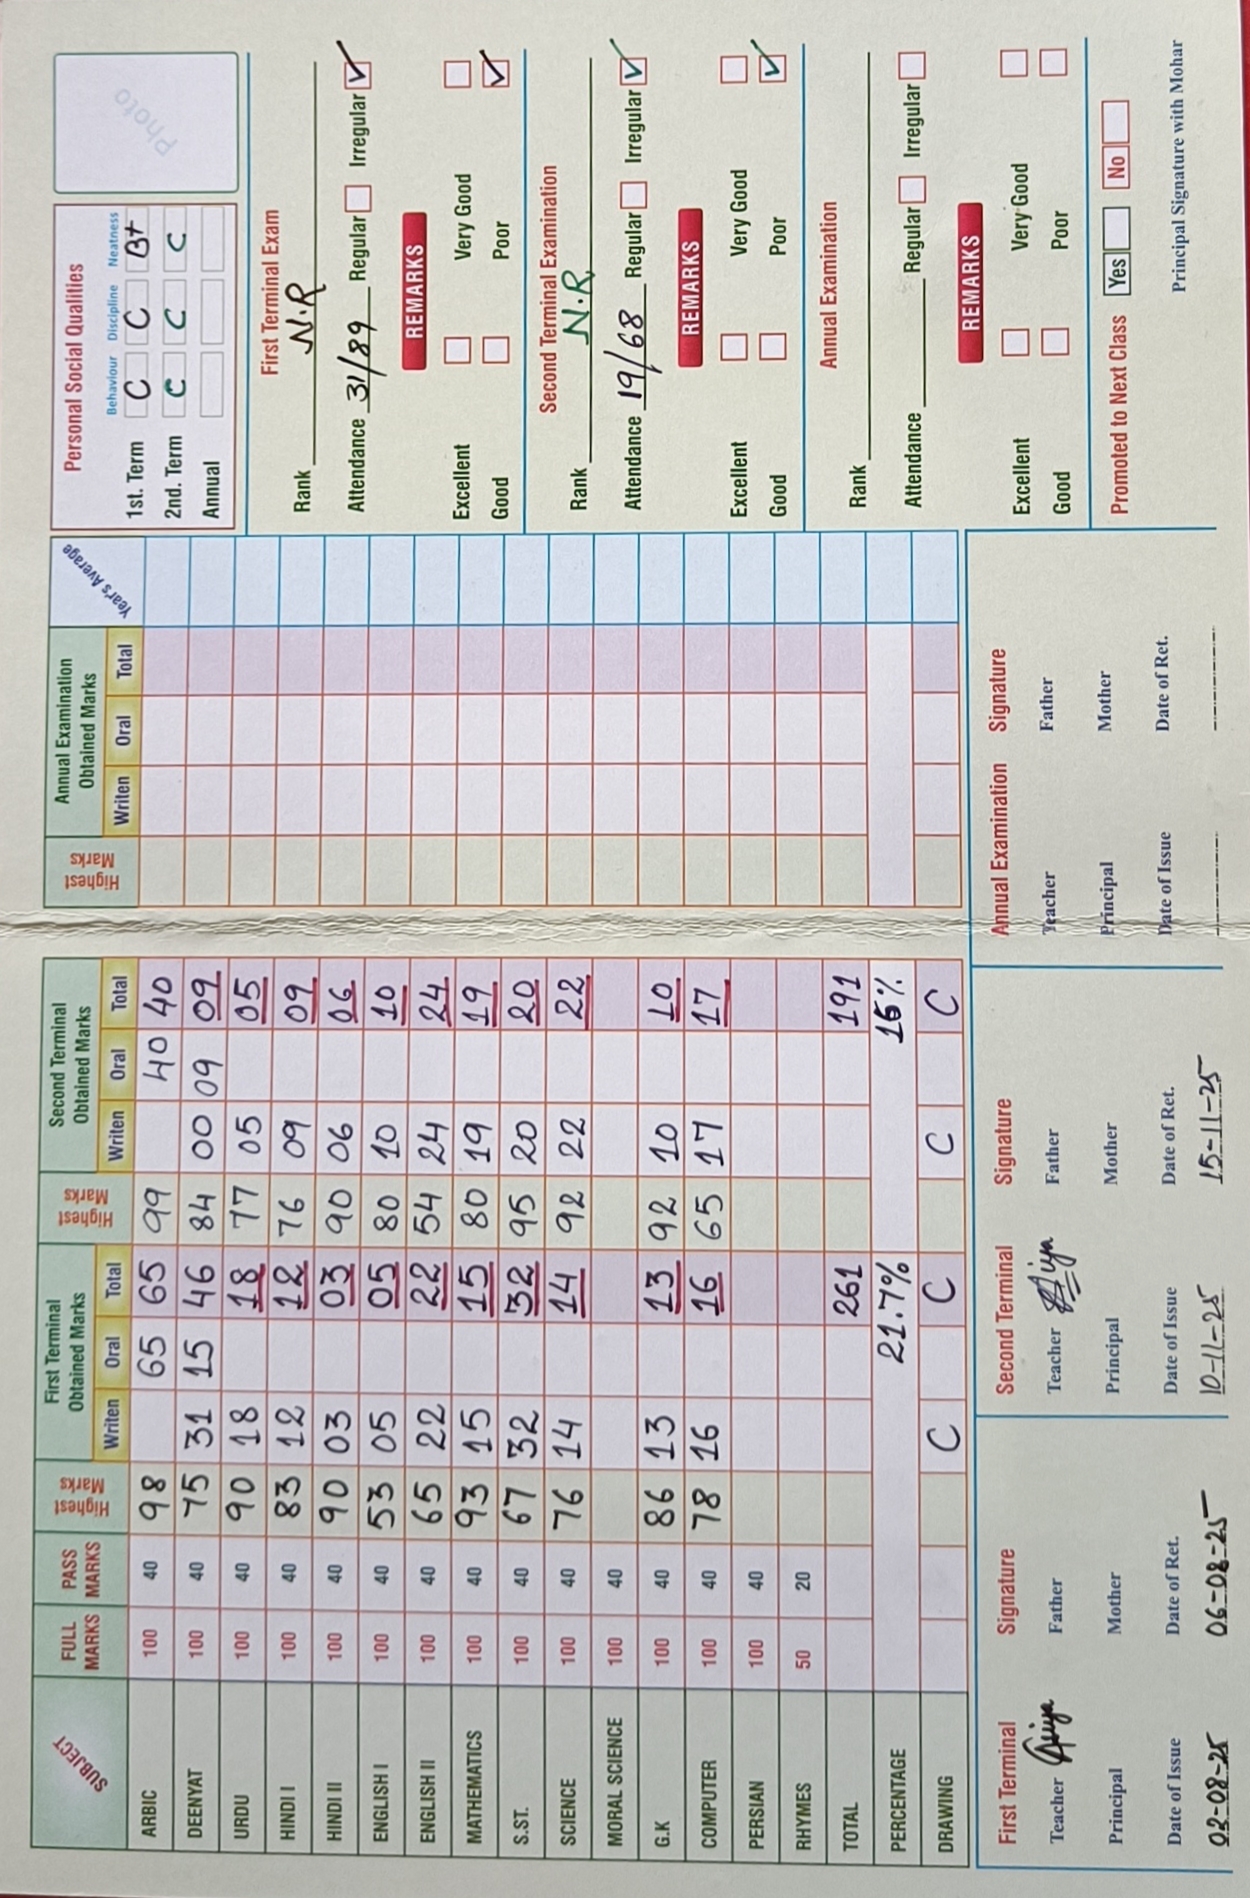 SUBJECT FULL MARKS PASS MARKS Highest Marks First Terminal Obtained Marks Writen Oral Total Highest Marks Second Terminal Obtained Marks Writen Oral Total Highest Marks Annual Examination Obtained Marks Writen Oral Total Year's Average
ARBIC 100 40 98 65 65 99 40 40
DEENYAT 100 40 75 31 15 46 84 00 09 09
URDU 100 40 90 18 18 77 05 05
HINDI I 100 40 83 12 12 76 09 09
HINDI II 100 40 90 03 03 90 06 06
ENGLISH I 100 40 53 05 05 80 10 10
ENGLISH II 100 40 65 22 22 54 24 24
MATHEMATICS 100 40 93 15 15 80 19 19
S.ST. 100 40 67 32 32 95 20 20
SCIENCE 100 40 76 14 14 92 22 22
MORAL SCIENCE 100 40
G.K 100 40 86 13 13 92 10 10
COMPUTER 100 40 78 16 16 65 17 17
PERSIAN 100 40
RHYMES 50 20
TOTAL 261 191
PERCENTAGE 21.7% 15%
DRAWING C C C C
First Terminal Signature
Teacher Father
Principal Mother
Date of Issue Date of Ret.
02-08-25 06-08-25
Second Terminal Signature
Teacher Father
Principal Mother
Date of Issue Date of Ret.
10-11-25 15-11-25
Annual Examination Signature
Teacher Father
Principal Mother
Date of Issue Date of Ret.
Personal Social Qualities
Behaviour Discipline Neatness
1st. Term C C B+
2nd. Term C C C
Annual
Photo
First Terminal Exam
Rank N.R
Attendance 31/89 Regular Irregular ✓
REMARKS
Excellent Very Good
Good Poor ✓
Second Terminal Examination
Rank N.R
Attendance 19/68 Regular Irregular ✓
REMARKS
Excellent Very Good
Good Poor ✓
Annual Examination
Rank
Attendance Regular Irregular
REMARKS
Excellent Very Good
Good Poor
Promoted to Next Class Yes No
Principal Signature with Mohar